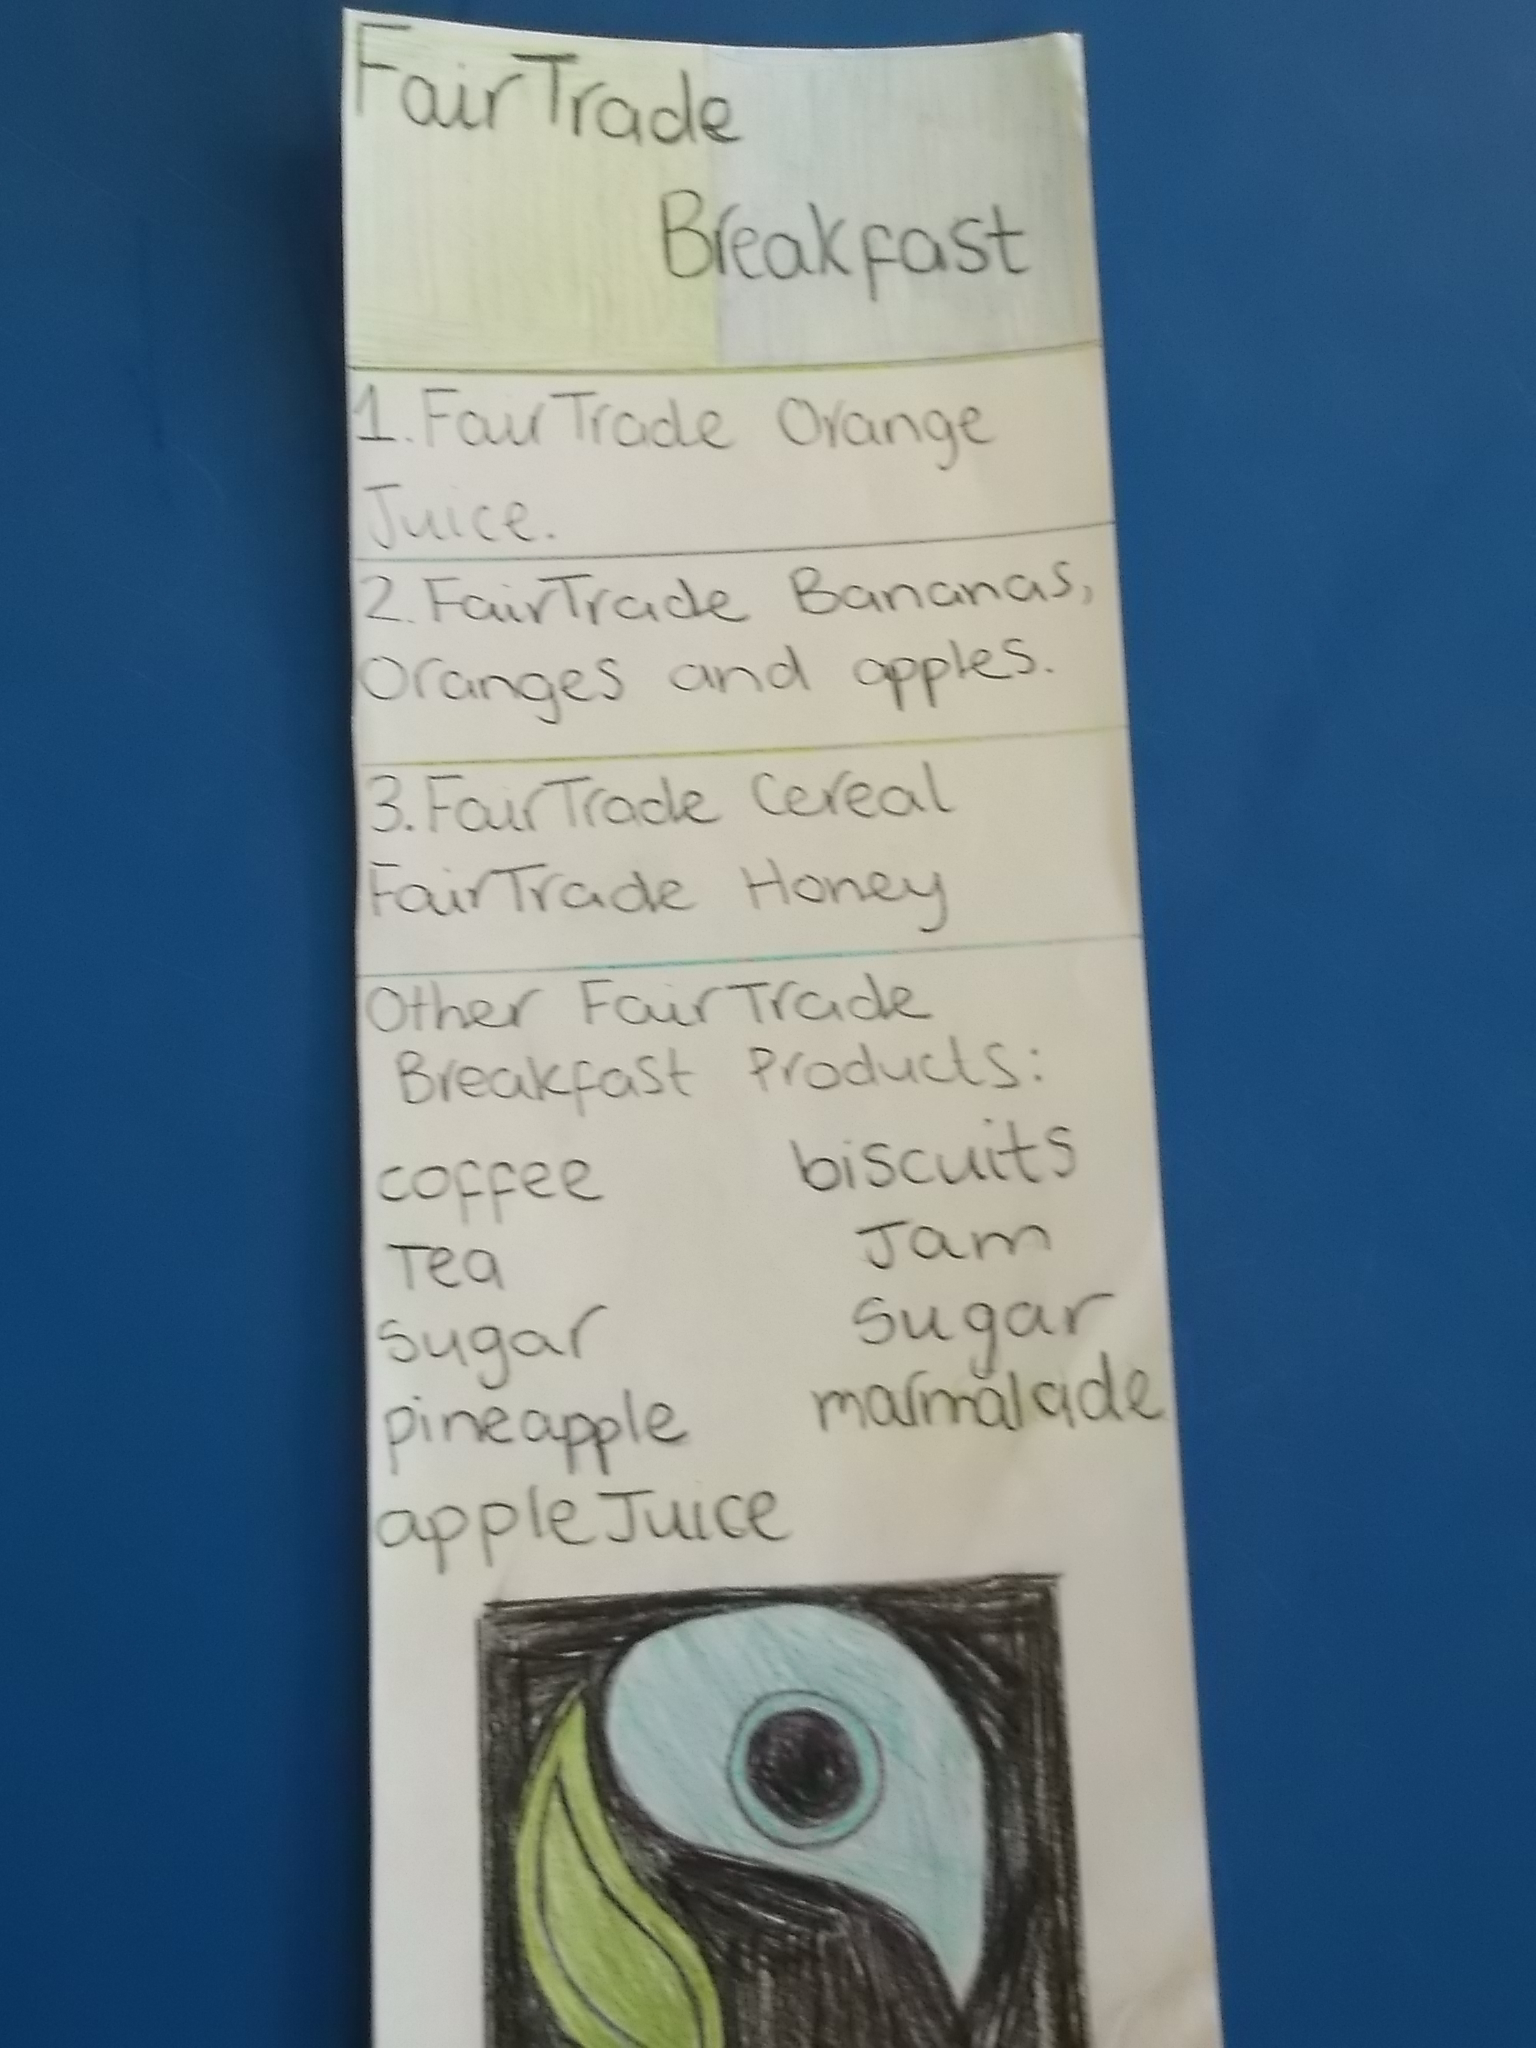 FairTrade
Breakfast
1. FairTrade Orange
Juice.
2. FairTrade Bananas,
Oranges and apples.
3. FairTrade Cereal
FairTrade Honey
Other FairTrade
Breakfast Products:
coffee biscuits
Tea Jam
sugar sugar
pineapple marmalade
apple Juice